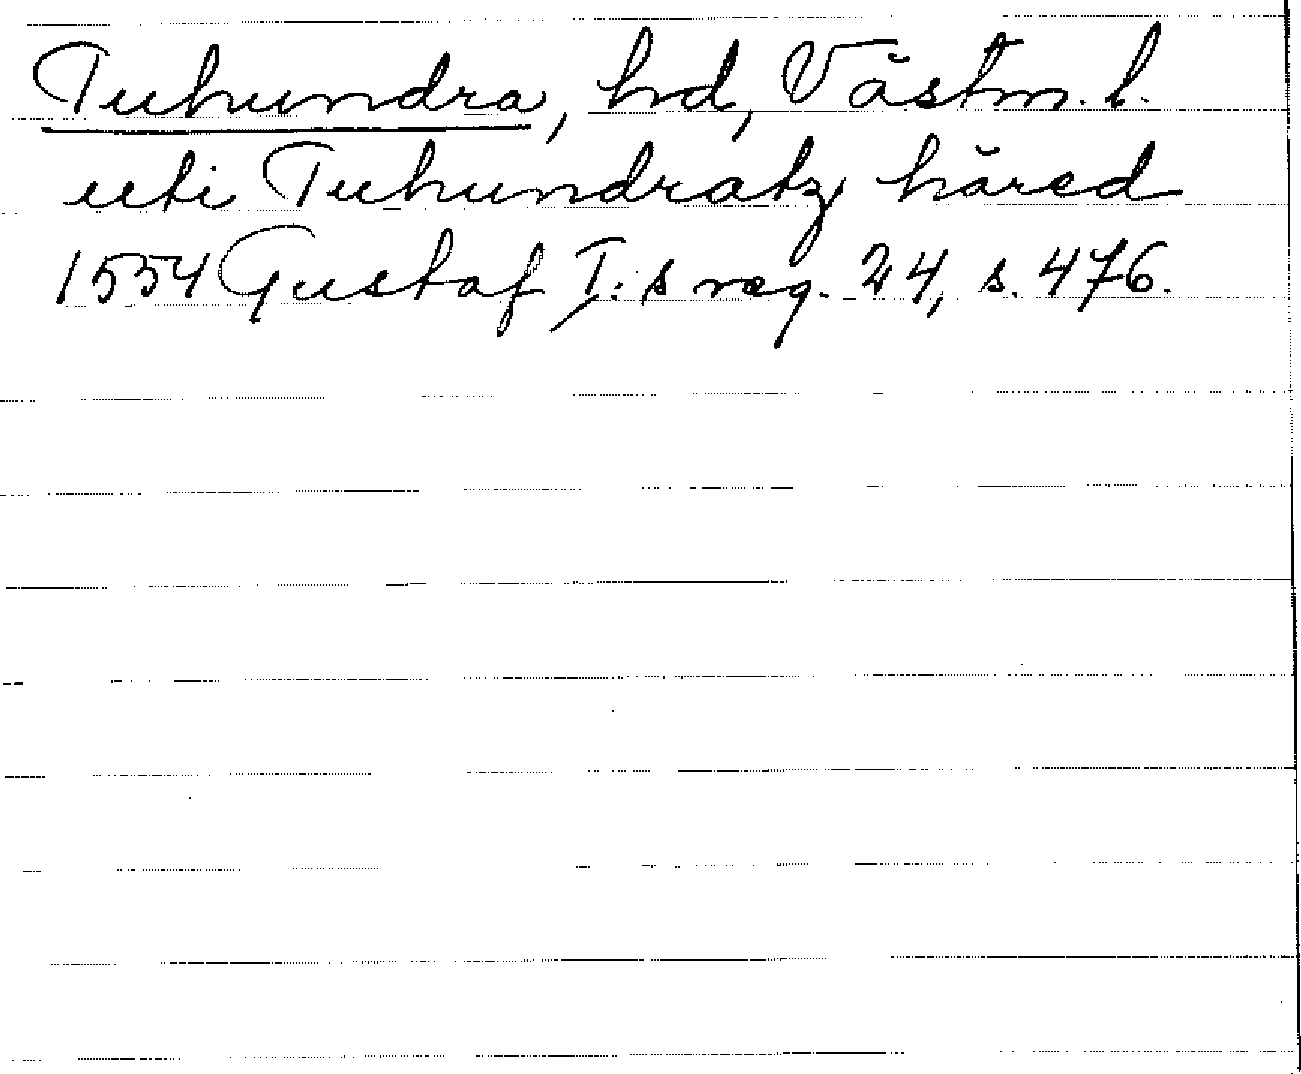 Tuhundra, hrd, Västm. l.
uti Tuhundratz häred
1554 Gustaf I:s reg. 24, s. 476.